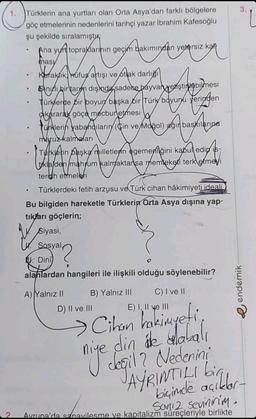 1. Türklerin ana yurtları olan Orta Asya'dan farklı bölgelere
göç etmelerinin nedenlerini tarihçi yazar İbrahim Kafesoğlu
şu şekilde sıralamıştır;
• Ana yurt topraklarının geçim bakımından yetersiz kal-
ması
• Kuraklık, nüfus artışı ve otlak darlığı
• dışında sadece hayvan yetiştirebilmesi
• Türklerde bir boyun başka bir Türk boyunu yerinden
çıkararak göçe mecbur etmesi
• Türklerin yabancıların (Çin ve Moğol) ağır baskılarına
maruz kalmaları
• Türklerin başka milletlerin egemenliğini kabul edip is-
tiklalden mahrum kalmaktansa memleketi terk etmeyi
tercih etmeleri
• Türklerdeki fetih arzusu ve Türk cihan hâkimiyeti ideali
Bu bilgiden hareketle Türklerin Orta Asya dışına yap-
tıkları göçlerin;
I. Siyasi,
II. Sosyal, ?
III. Dinî ?
alanlardan hangileri ile ilişkili olduğu söylenebilir?
A) Yalnız II B) Yalnız III C) I ve II
D) II ve III E) I, II ve III
→ Cihan hakimiyeti
niye din ile alakalı
değil? Nedenini
AYRINTILI bir
biçimde açıklar-
sanız sevinirim.
2. Avrupa'da sanayileşme ve kapitalizm süreçleriyle birlikte
3.
endemik